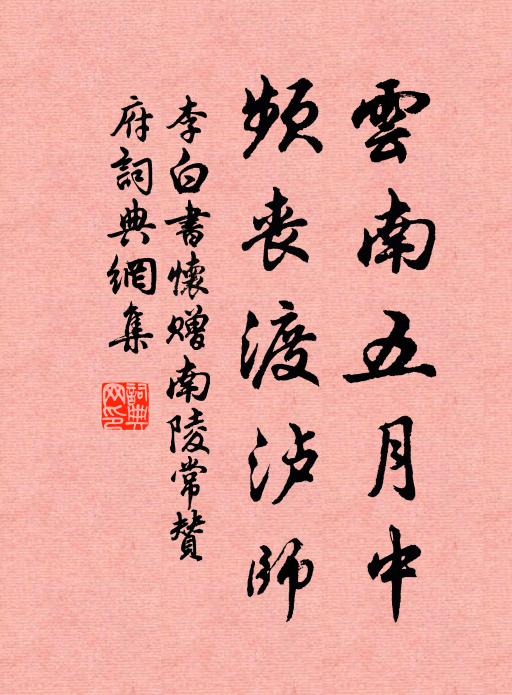 雲南五月中
頻喪渡泸師
李白書懷贈南陵常賛
府詞典網集
詞典网印